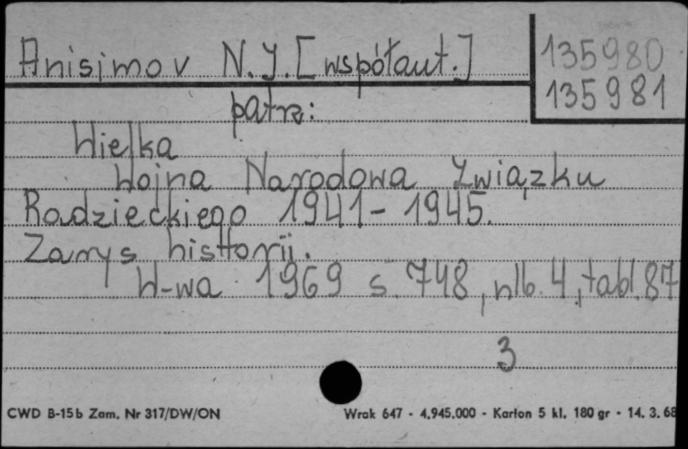 Anisimov N. I. [współaut.]
135980
135981
patrz:
Wielka
Wojna Narodowa Związku
Radzieckiego 1941 - 1945.
Zarys historii.
W-wa 1969 s. 748, nlb. 4, tabl. 87
3
CWD B-15b Zam. Nr 317/DW/ON Wrak 647 - 4.945.000 - Karton 5 kl. 180 gr - 14. 3. 68